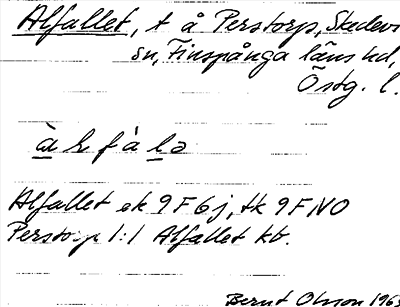 Alfallet, t å Perstorp, Skedevi
sn, Finspånga läns hd,
Östg. l.
Alfallet ek 9F6j, tk 9FNO
Perstorp 1:1 Alfallet kb.
Bernt Olsson 1965